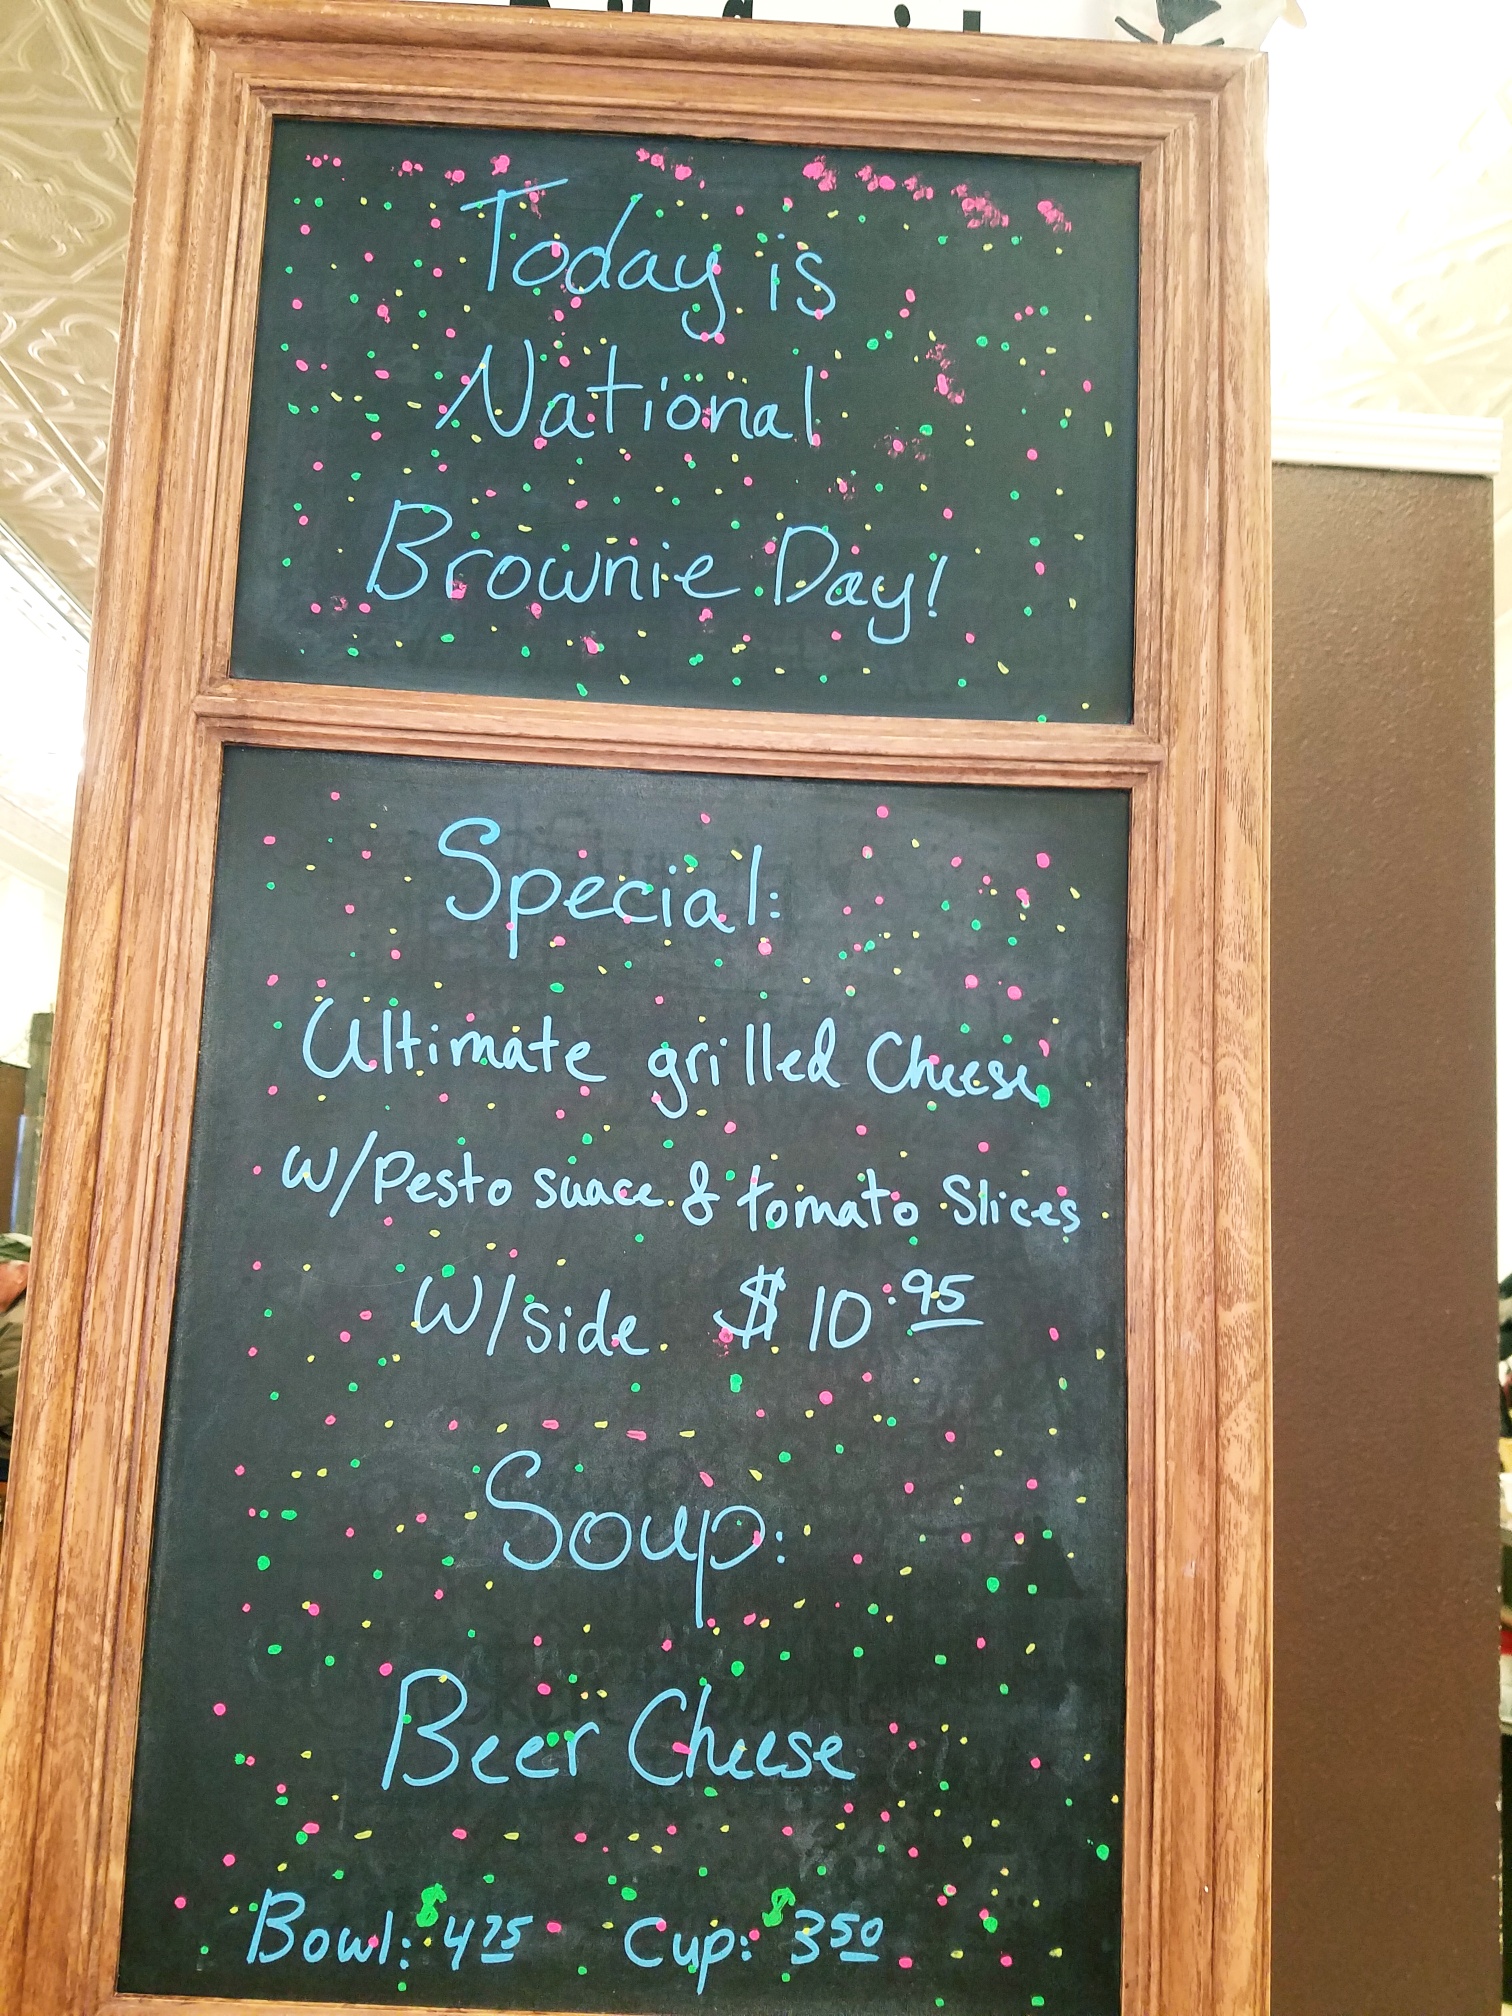 Today is
National
Brownie Day!
Special:
Ultimate grilled Cheese
w/Pesto suace & tomato Slices
W/side $10.95
Soup:
Beer Cheese
Bowl: $4 75 Cup: $3 50